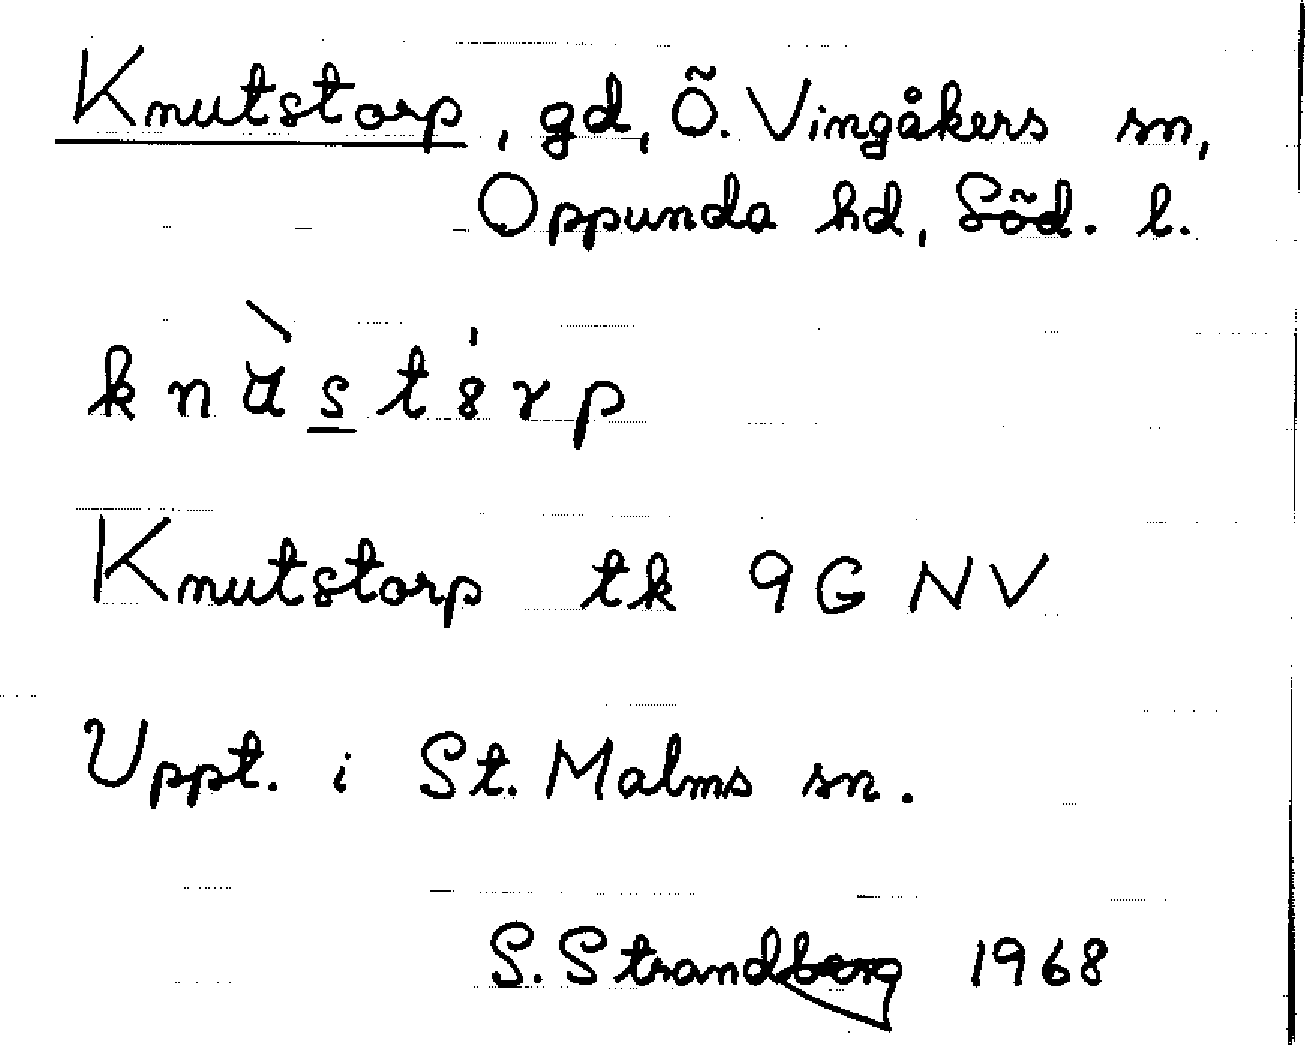 Knutstorp, gd, Ö. Vingåkers sn,
Oppunda hd, Söd. l.
Knutstorp tk 9G NV
Uppt. i St. Malms sn.
S. Strandberg 1968